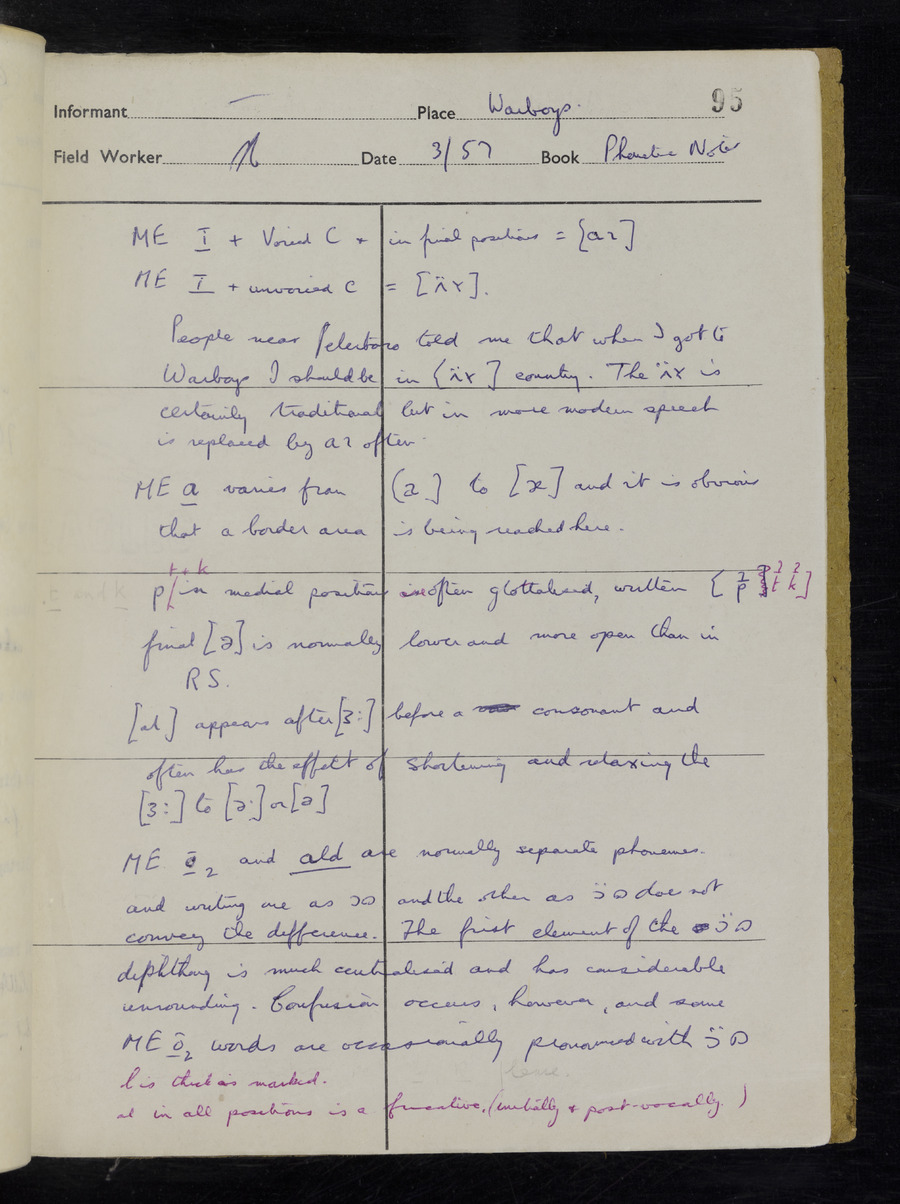 95
Informant — Place Warboys.
Field Worker Date 3/57 Book Phonetic Notes
ME ī + Voiced C + in final positions = [aɪ]
ME ī + unvoiced C = [ʌ̈ɪ].
People near Peterboro told me that when I got to
Warboys I should be in [ʌ̈ɪ] country. The ʌ̈ɪ is
certainly traditional but in more modern speech
is replaced by aɪ often.
ME a varies from [a] to [æ] and it is obvious
that a border area is being reached here.
t + k
p in medial position is often glottalised, written [ʔp ʔt ʔk]
final [ə] is normally lower and more open than in
RS.
[əɫ] appears after [ɜ:] before a consonant and
often has the effect of shortening and relaxing the
[ɜ:] to [ə·] or [ə]
ME ō₂ and ald are normally separate phonemes.
and writing one as ɔʊ and the other as ɔ̈ʊ does not
convey the difference. The first element of the ɔ̈ʊ
diphthong is much centralised and has considerable
unrounding. Confusion occurs, however, and some
ME ō₂ words are occasionally pronounced with ɔ̈ʊ
l is thick as marked.
ɹ in all positions is a fricative. (initially + post-vocally.)